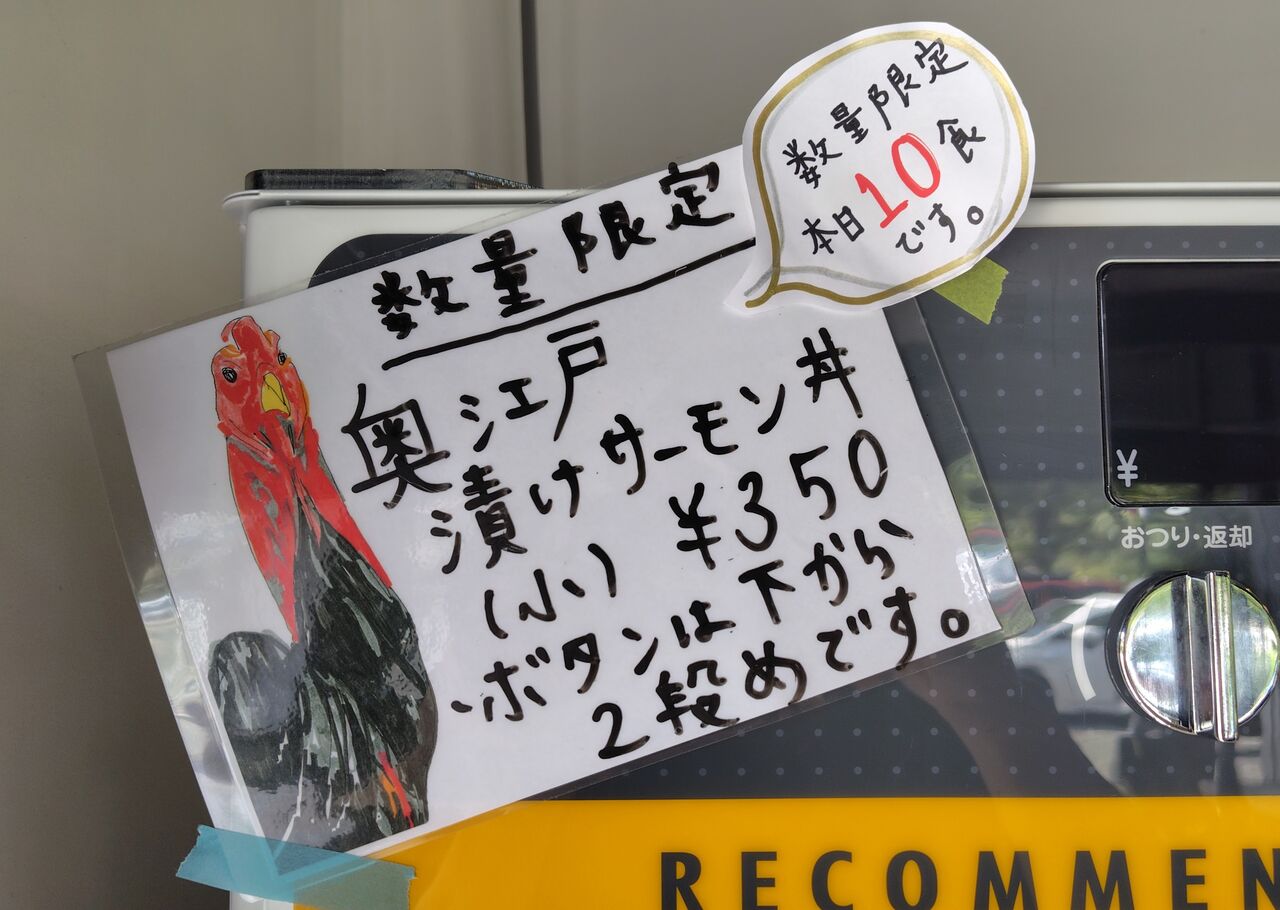 数量限定
本日10食
です。
数量限定
奥江戸
漬けサーモン丼
(小) ¥350
・ボタンは下から
2段めです。
¥
おつり・返却
RECOMMEN